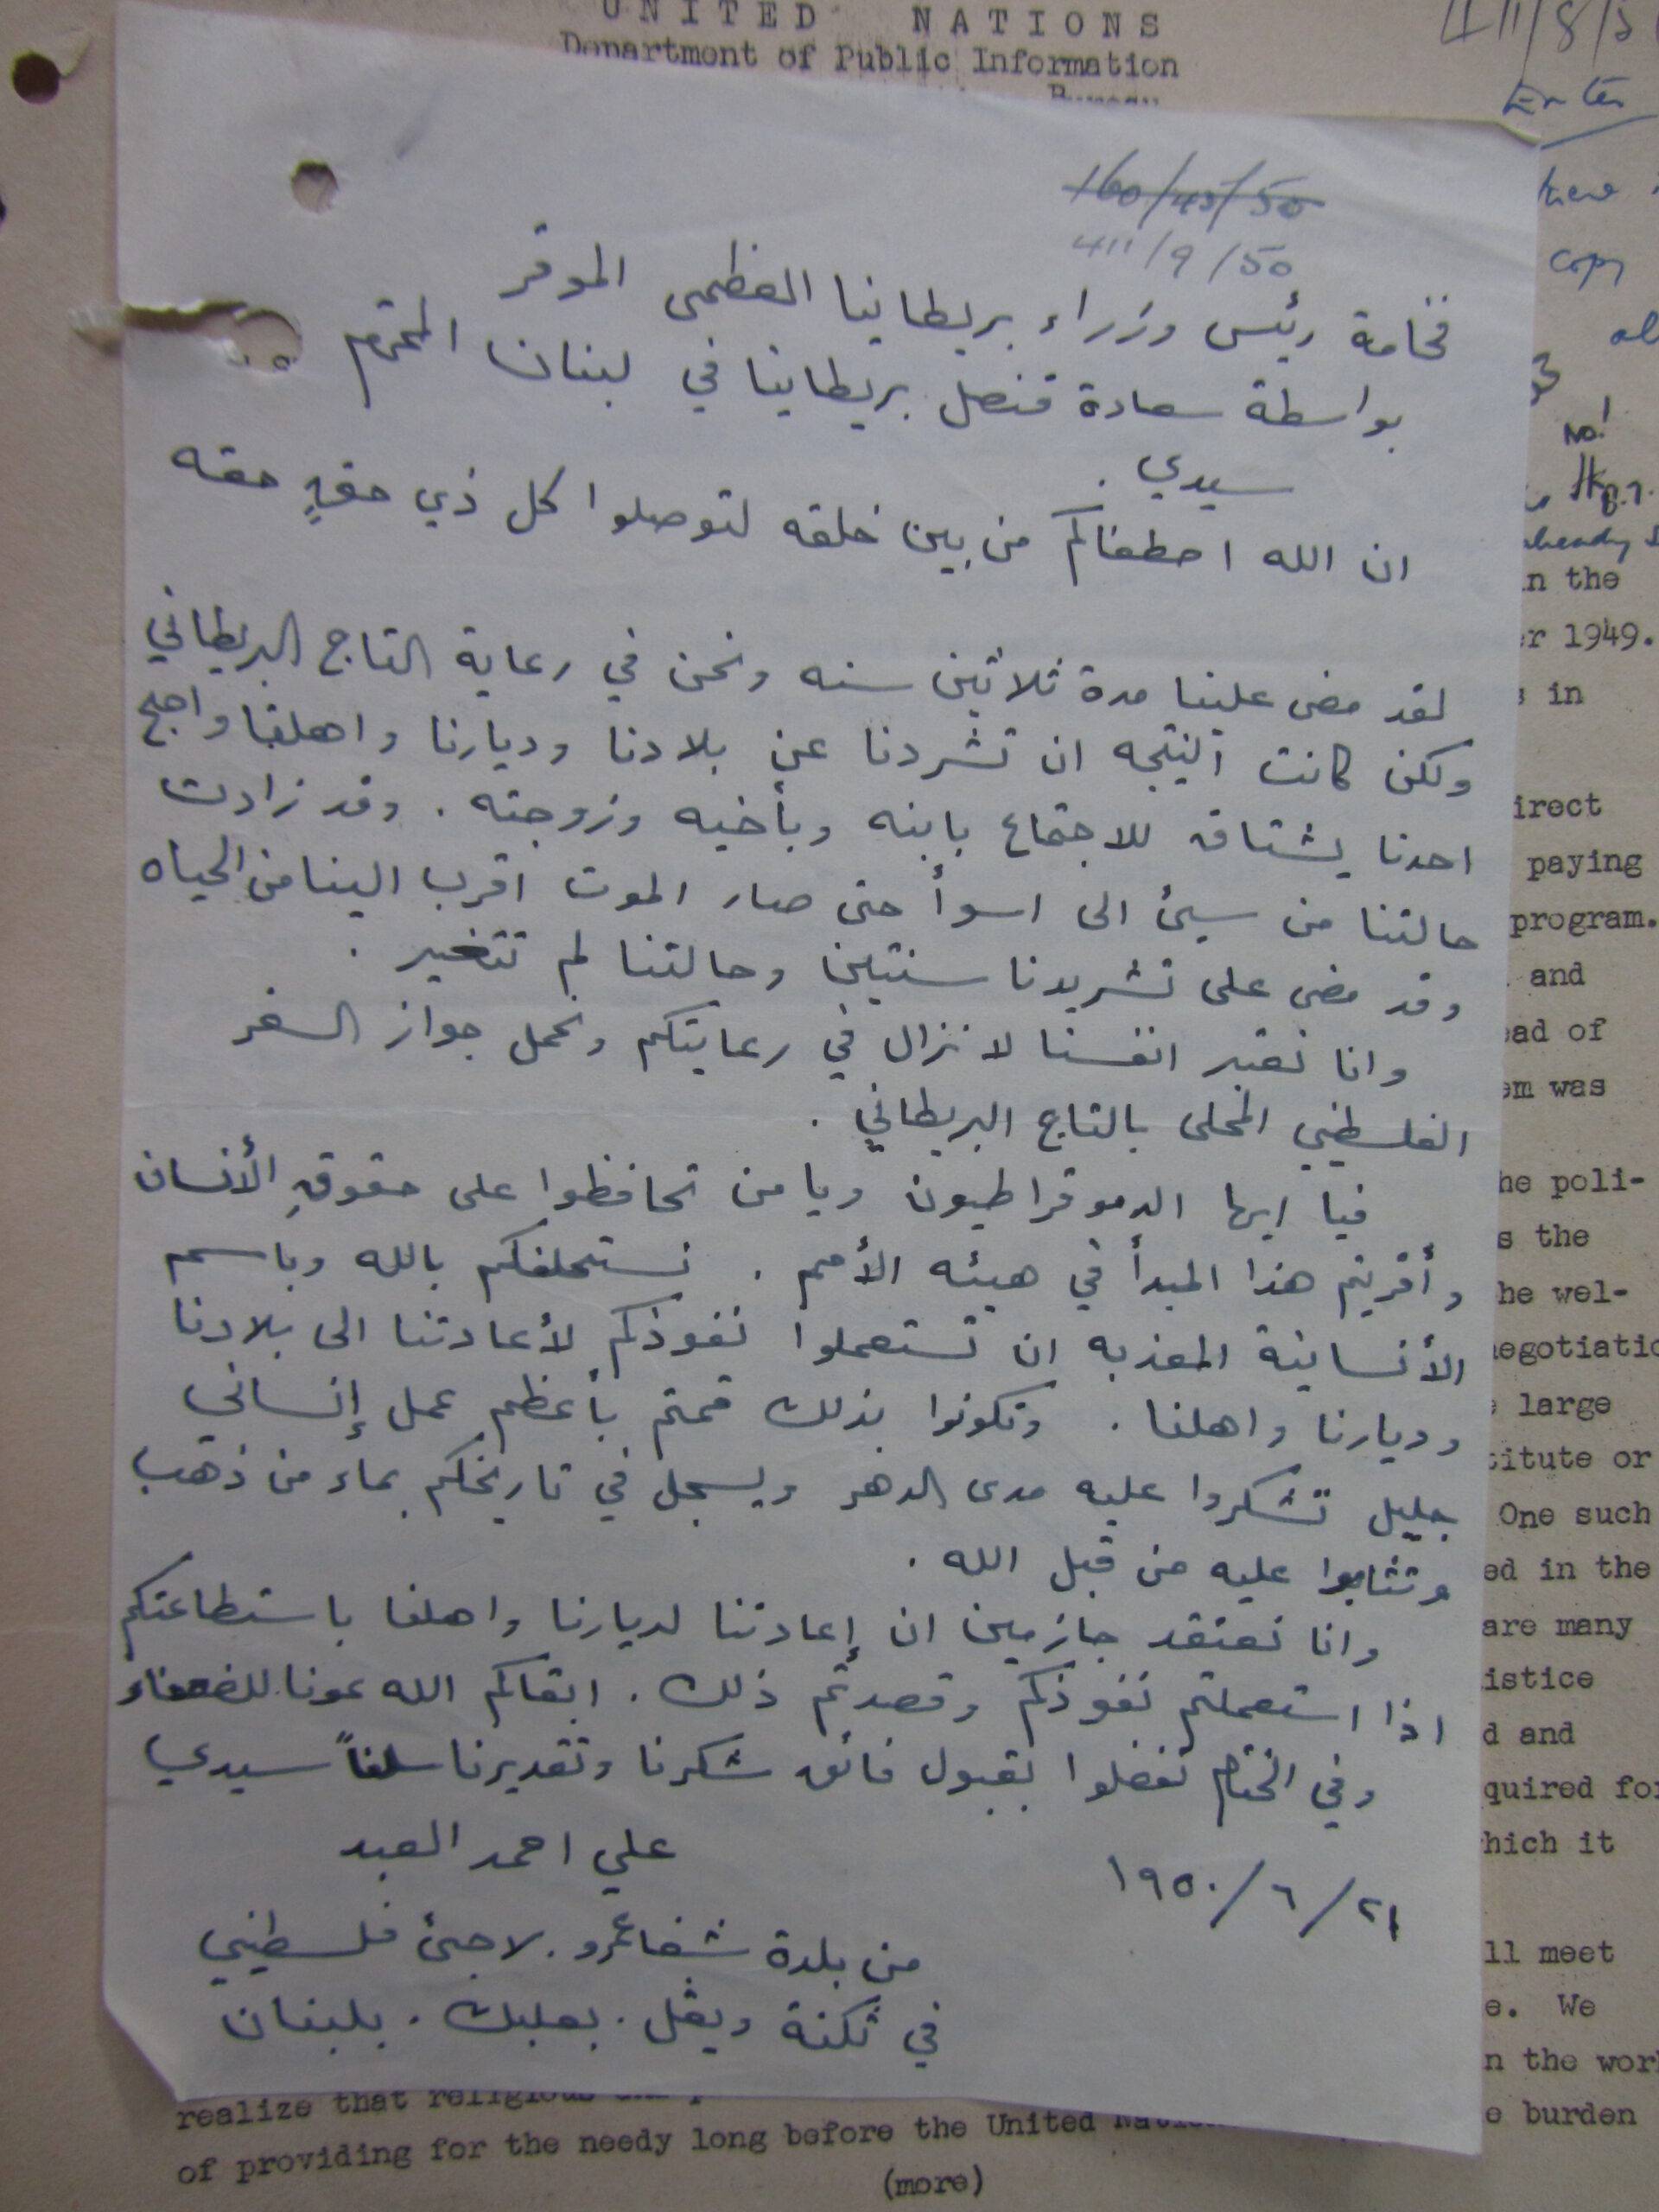 UNITED NATIONS
Department of Public Information
Bureau
411/8/5
Enter
copy
No!
already
160/43/50
411/9/50
فخامة رئيس وزراء بريطانيا العظمى الموقر
بواسطة سعادة قنصل بريطانيا في لبنان المحترم
سيدي .
ان الله اصطفاكم من بين خلقه لتوصلوا كل ذي حقٍ حقه
لقد مضى علينا مدة ثلاثين سنه ونحن في رعاية التاج البريطاني
ولكن كانت النتيجه ان تشردنا عن بلادنا وديارنا واهلنا واصبح
احدنا يشتاق للاجتماع بابنه وبأخيه وزوجته . وقد زادت
حالتنا من سيئ الى اسوأ حتى صار الموت اقرب الينا من الحياه
وقد مضى على تشريدنا سنتين وحالتنا لم تتغير .
وانا نعتبر انفسنا لا نزال في رعايتكم ونحمل جواز السفر
الفلسطيني المحلى بالتاج البريطاني .
فيا ايها الدموقراطيون ويا من تحافظوا على حقوقِ الأنسان
وأقريتم هذا المبدأ في هيئه الأمم . نستحلفكم بالله وباسم
الأنسانية المعذبه ان تستعملوا نفوذكم لأعادتنا الى بلادنا
وديارنا واهلنا . وتكونوا بذلك قمتم بأعظم عمل إنساني
جليل تشكروا عليه مدى الدهر ويسجل في تاريخكم بماء من ذهب
وتثابوا عليه من قبل الله .
وانا نعتقد جازمين ان إعادتنا لديارنا واهلنا باستطاعتكم
اذا استعملتم نفوذكم وقصدتم ذلك . ابقاكم الله عونا للضعفاء
وفي الختام تفضلوا بقبول فائق شكرنا وتقديرنا سلفاً سيدي
علي احمد العبد
٢١/٦/١٩٥٠
من بلدة شفاعمرو . لاجئ فلسطيني
في ثكنة ويفل . بعلبك . بلبنان
in the
er 1949.
s in
irect
paying
program.
and
ead of
em was
he poli-
s the
he wel-
negotiatio
e large
titute or
One such
ed in the
are many
istice
d and
quired for
which it
ll meet
e. We
n the wor
realize that religious
e burden
of providing for the needy long before the United
(more)